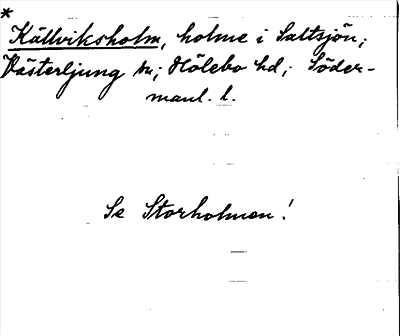 *
Källviksholm, holme i Saltsjön;
Västerljung sn; Hölebo hd; Söder-
manl. l.
Se Storholmen!